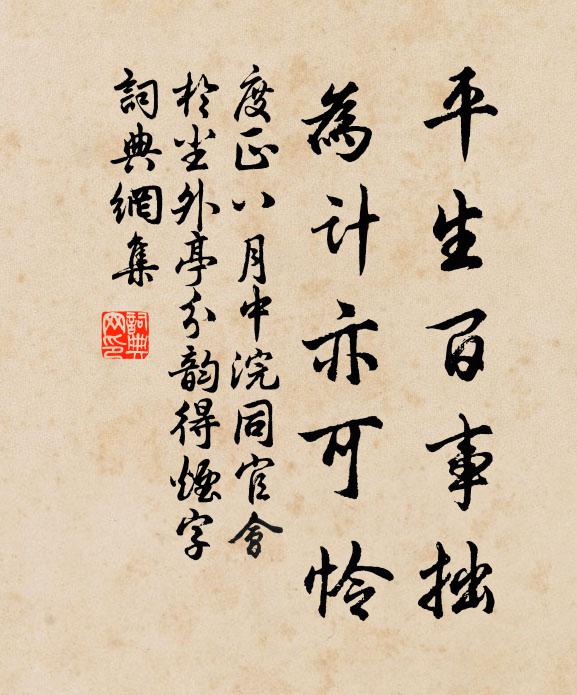 平生百事拙
為計亦可憐
度正八月中浣同官會
於坐外亭分韵得煙字
詞典網集
詞典
网印